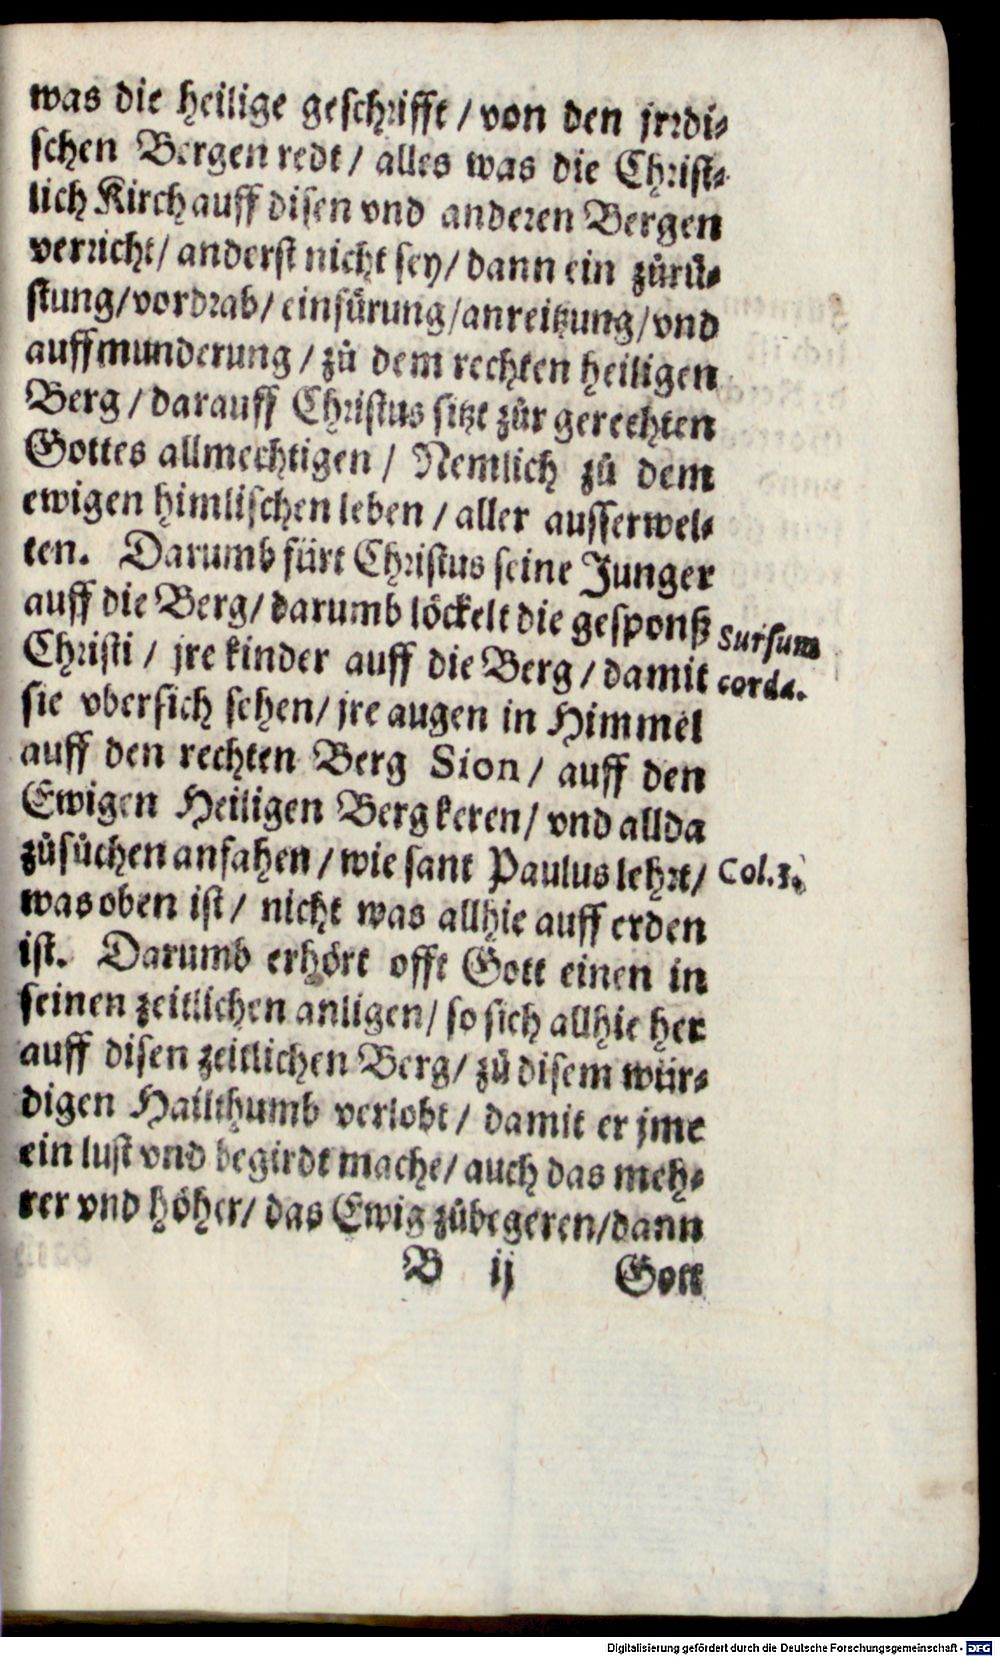 was die heilige geschrifft / von den jrrdi-
schen Bergen redt / alles was die Christ-
lich Kirch auff disen vnd anderen Bergen
verricht / anderst nicht sey / dann ein zůrü-
stung / vordrab / einfürung / anreitzung / vnd
auffmunderung / zů dem rechten heiligen
Berg / darauff Christus sitzt zůr gerechten
Gottes allmechtigen / Nemlich zů dem
ewigen himlischen leben / aller ausserwel-
ten. Darumb fürt Christus seine Junger
auff die Berg / darumb löckelt die gesponß
Sursum
Christi / jre kinder auff die Berg / damit
corda.
sie vbersich sehen / jre augen in Himmel
auff den rechten Berg Sion / auff den
Ewigen Heiligen Berg keren / vnd allda
zůsůchen anfahen / wie sant Paulus lehrt /
Col.3.
was oben ist / nicht was allhie auff erden
ist. Darumb erhört offt Gott einen in
seinen zeitlichen anligen / so sich allhie her
auff disen zeitlichen Berg / zů disem wür-
digen Hailthumb verlobt / damit er jme
ein lust vnd begirdt mache / auch das meh-
rer vnd höher / das Ewig zůbegeren / dann
B ij Gott
Digitalisierung gefördert durch die Deutsche Forschungsgemeinschaft - DFG